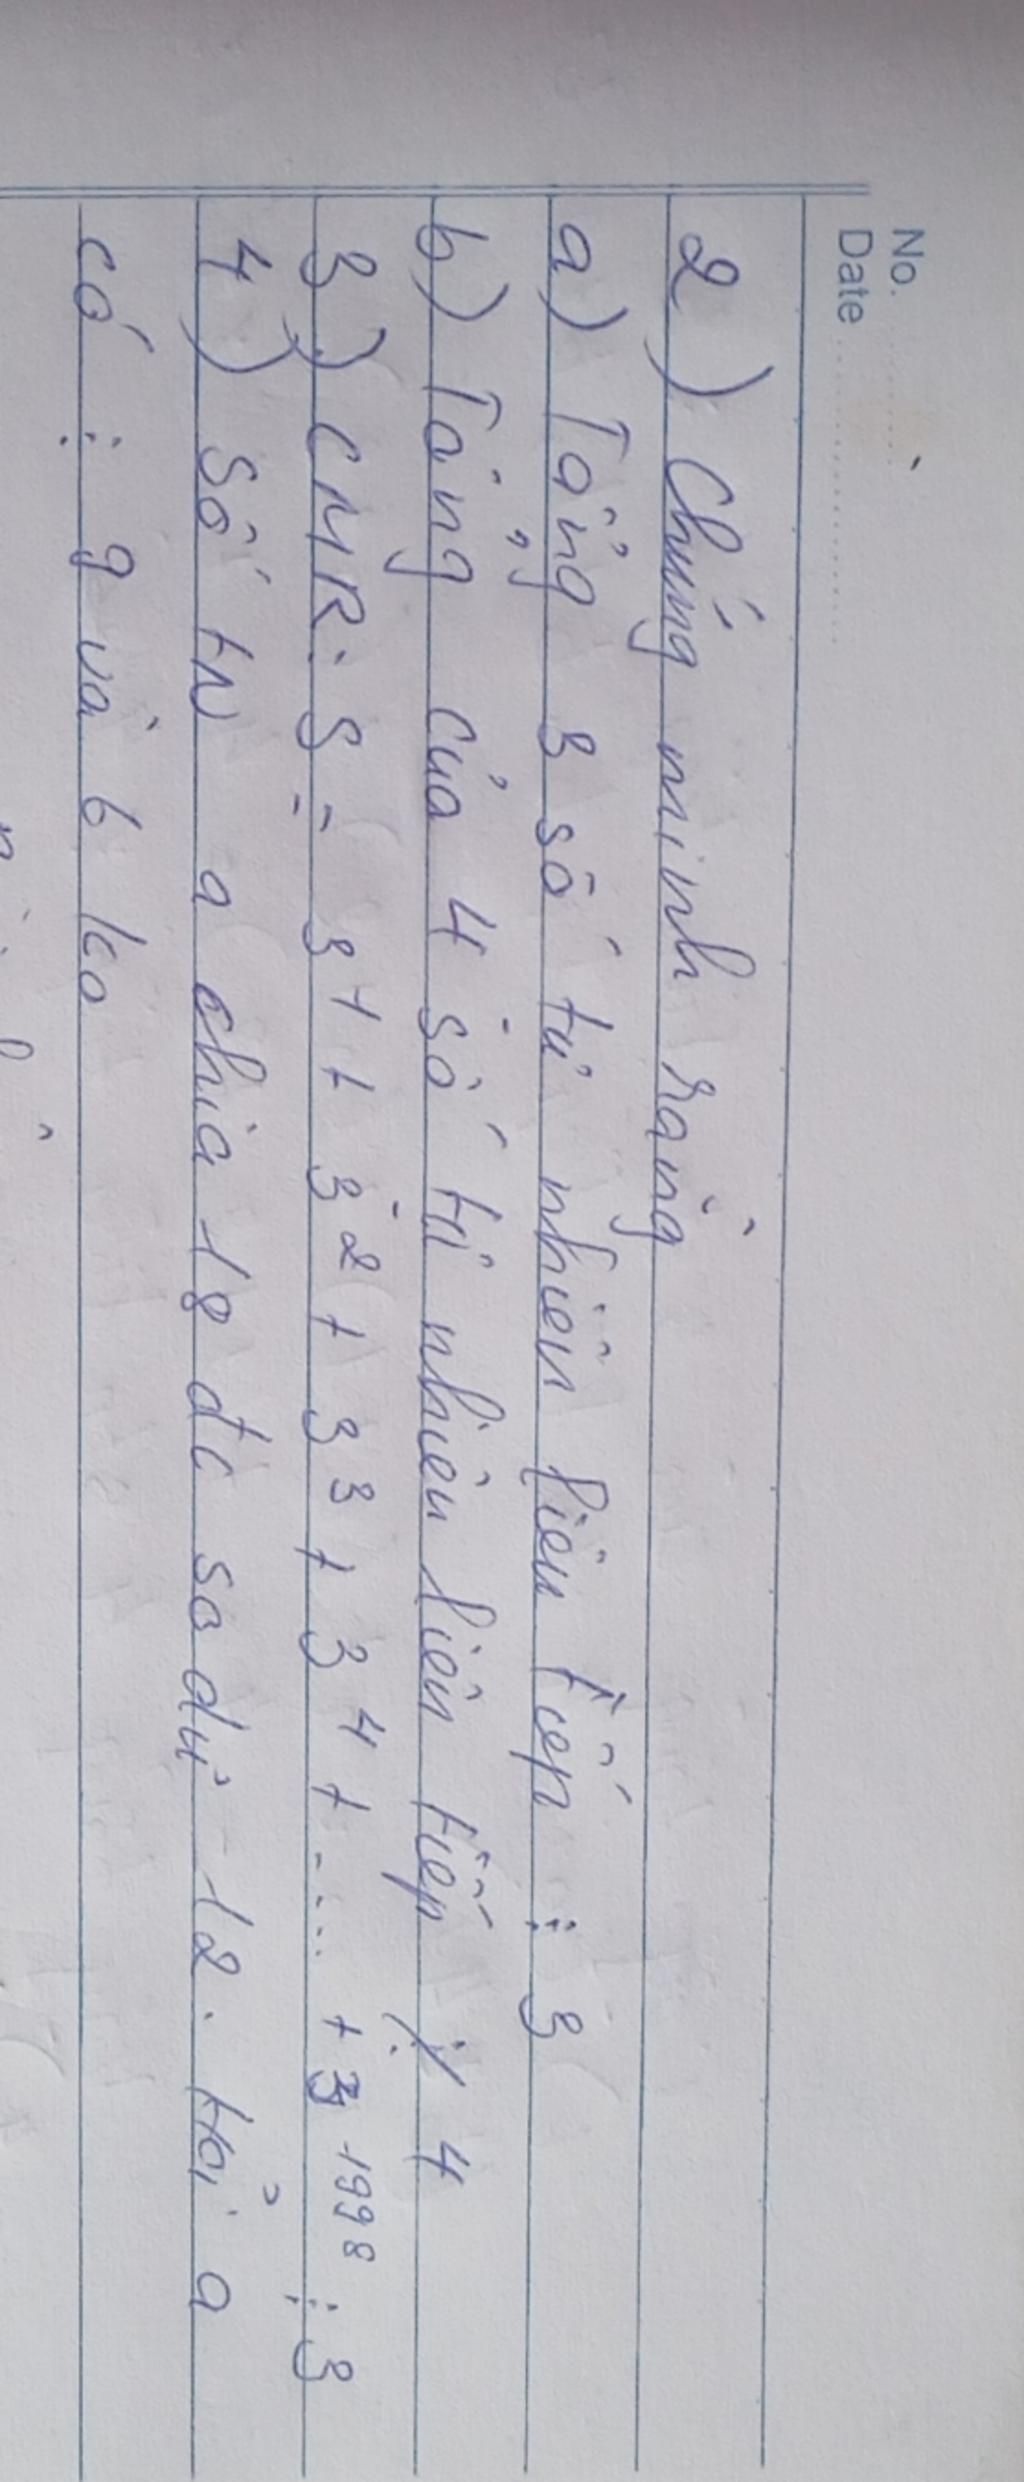 No.
Date
2) Chứng minh rằng
a) Tổng 3 số tự nhiên liên tiếp ⋮ 3
b) Tổng của 4 số tự nhiên liên tiếp ⋮̸ 4
3) CMR: S = 3¹ + 3² + 3³ + 3⁴ + .... + 3¹⁹⁹⁸ ⋮ 3
4) Số tN a chia 18 đc số dư 12. Hỏi a
có ⋮ 9 và 6 ko